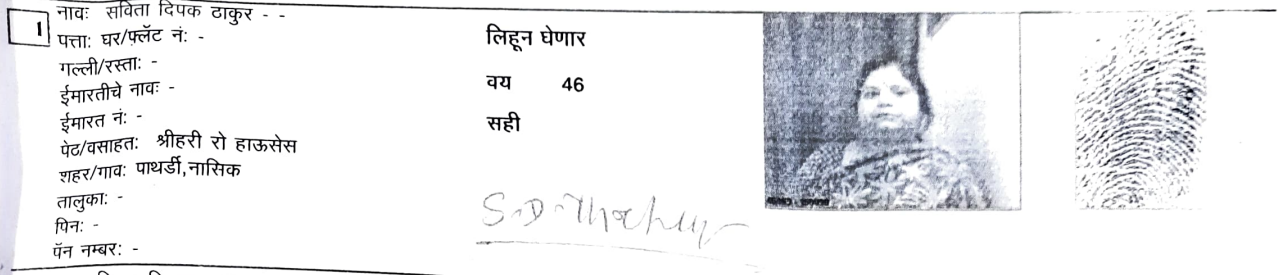 1
नावः सविता दिपक ठाकुर - -
पत्ताः घर/फ्लॅट नं: -
गल्ली/रस्ताः -
ईमारतीचे नावः -
ईमारत नं: -
पेठ/वसाहतः श्रीहरी रो हाऊसेस
शहर/गावः पाथर्डी,नासिक
तालुकाः -
पिनः -
पॅन नम्बरः -
लिहून घेणार
वय 46
सही
S.D.Thakur